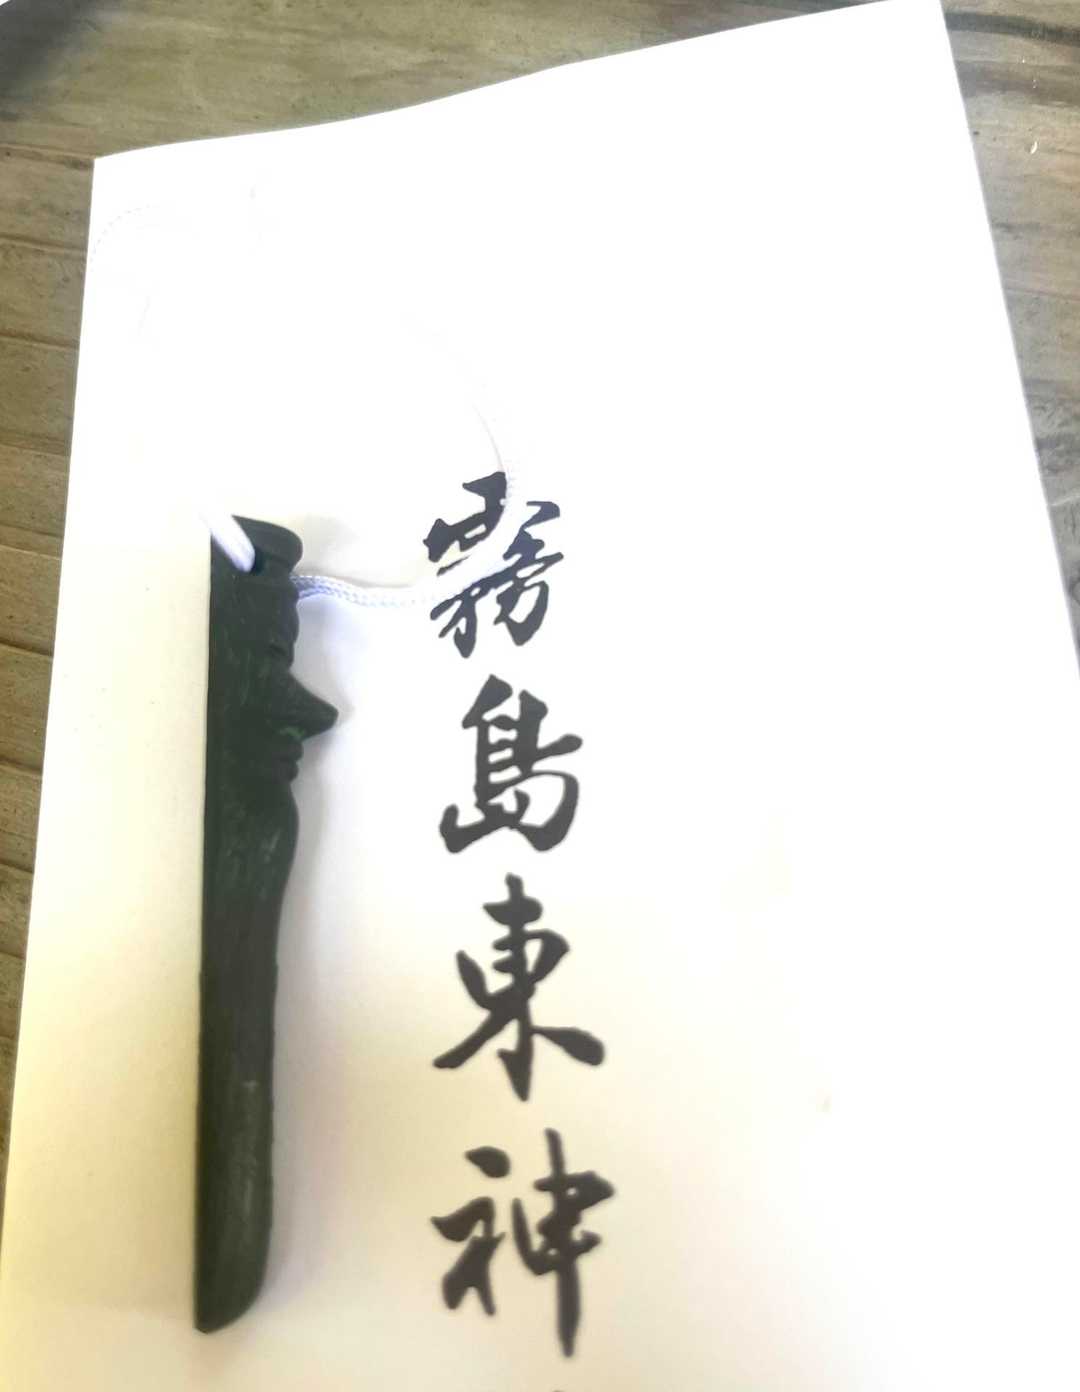 霧島東神